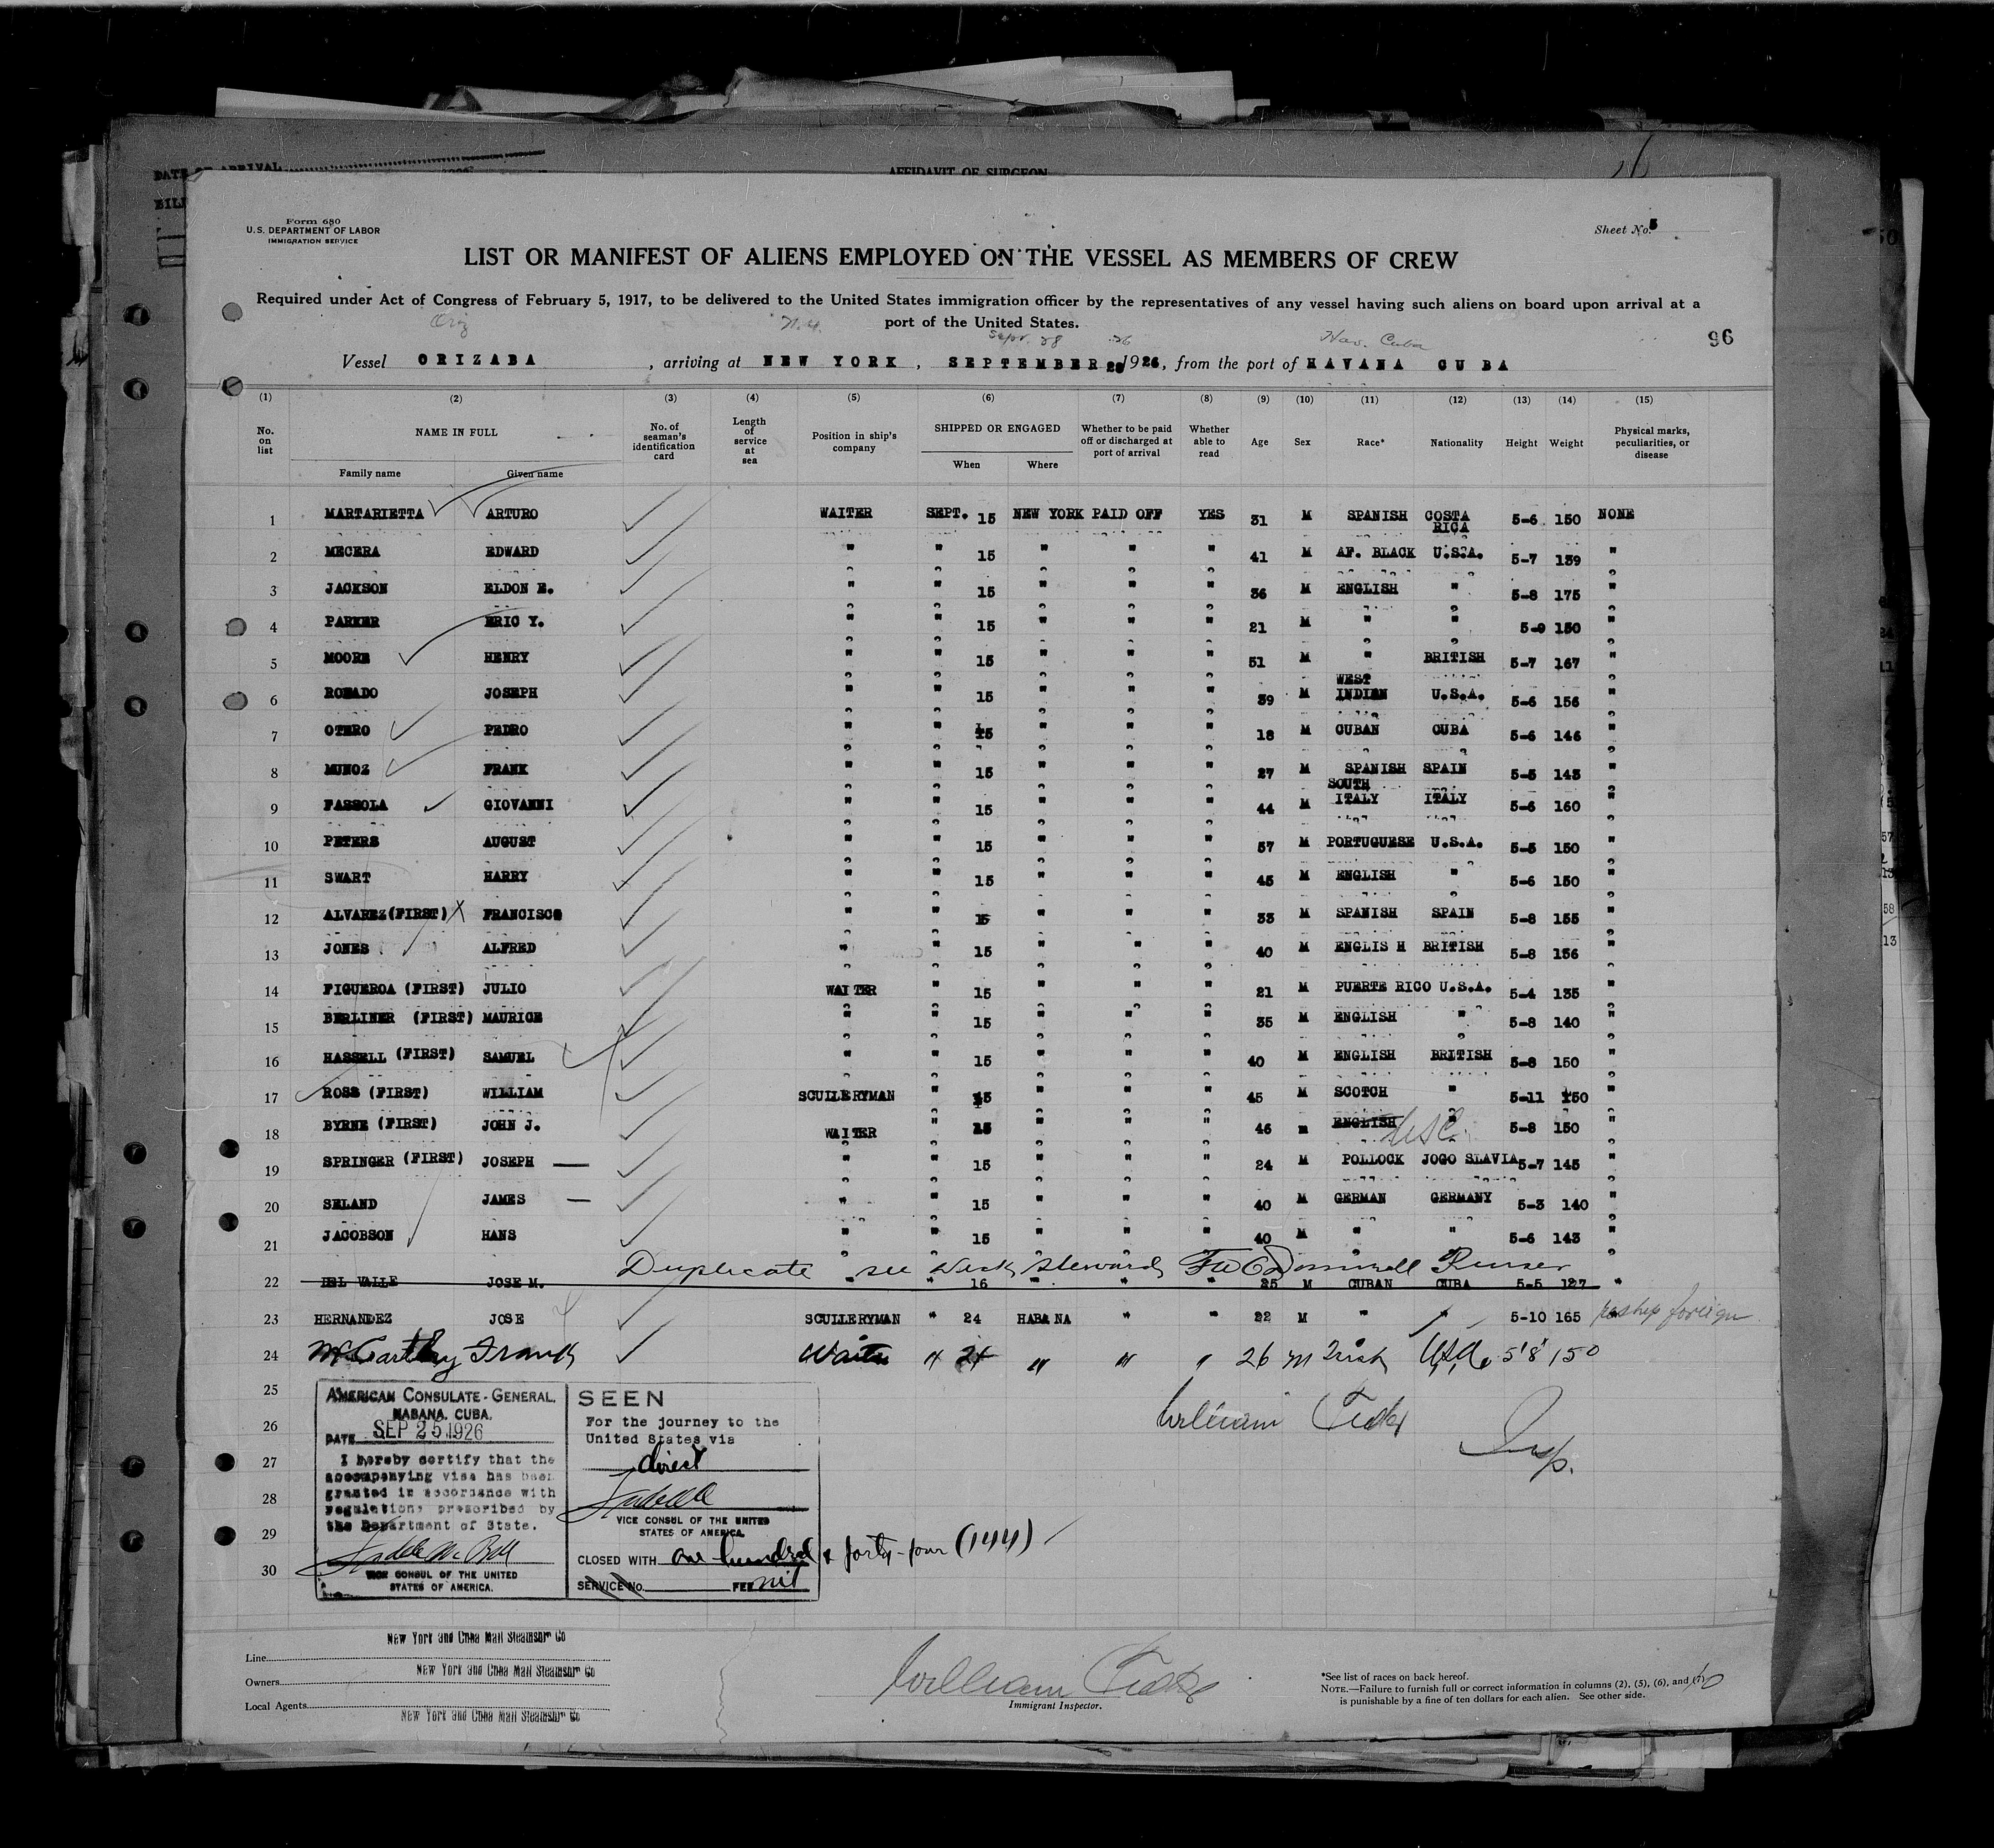 DATE OF ARRIVAL
AFFIDAVIT OF SURGEON
Form 680
U.S. DEPARTMENT OF LABOR
IMMIGRATION SERVICE
Sheet No. 5
LIST OR MANIFEST OF ALIENS EMPLOYED ON THE VESSEL AS MEMBERS OF CREW
Required under Act of Congress of February 5, 1917, to be delivered to the United States immigration officer by the representatives of any vessel having such aliens on board upon arrival at a
port of the United States.
Oriz N.Y. Sept. 28 26 Hav. Cuba
96
Vessel ORIZABA, arriving at NEW YORK, SEPTEMBER 28 1926, from the port of HAVANA CUBA
(1) (2) (3) (4) (5) (6) (7) (8) (9) (10) (11) (12) (13) (14) (15)
No. on list NAME IN FULL Family name Given name No. of seaman's identification card Length of service at sea Position in ship's company SHIPPED OR ENGAGED When Where Whether to be paid off or discharged at port of arrival Whether able to read Age Sex Race* Nationality Height Weight Physical marks, peculiarities, or disease
1 MARTARIETTA ARTURO WAITER SEPT. 15 NEW YORK PAID OFF YES 31 M SPANISH COSTA RICA 5-6 150 NONE
2 MECERA EDWARD " " 15 " " " 41 M AF. BLACK U.S.A. 5-7 139 "
3 JACKSON ELDON E. " " 15 " " " 36 M ENGLISH " 5-8 175 "
4 PARKER ERIC Y. " " 15 " " " 21 M " " 5-9 150 "
5 MOORE HENRY " " 15 " " " 51 M " BRITISH 5-7 167 "
6 ROSADO JOSEPH " " 15 " " " 39 M WEST INDIEN U.S.A. 5-6 156 "
7 OTERO PEDRO " " 15 " " " 18 M CUBAN CUBA 5-6 146 "
8 MUNOZ FRANK " " 15 " " " 27 M SPANISH SPAIN 5-5 143 "
9 FASSOLA GIOVANNI " " 15 " " " 44 M SOUTH ITALY ITALY 5-6 160 "
10 PETERS AUGUST " " 15 " " " 57 M PORTUGUESE U.S.A. 5-5 150 "
11 SWART HARRY " " 15 " " " 45 M ENGLISH " 5-6 150 "
12 ALVAREZ(FIRST) X FRANCISCO " " 15 " " " 33 M SPANISH SPAIN 5-8 155 "
13 JONES ALFRED " " 15 " " " 40 M ENGLIS H BRITISH 5-8 156 "
14 FIGUEROA (FIRST) JULIO WAITER " 15 " " " 21 M PUERTE RICO U.S.A. 5-4 135 "
15 BERLINER (FIRST) MAURICE " " 15 " " " 35 M ENGLISH " 5-8 140 "
16 HASSELL (FIRST) SAMUEL " " 15 " " " 40 M ENGLISH BRITISH 5-8 150 "
17 ROSS (FIRST) WILLIAM SCULLERYMAN " 15 " " " 45 M SCOTCH " 5-11 150 "
18 BYRNE (FIRST) JOHN J. WAITER " 15 " " " 46 M ENGLISH USC. " 5-8 150 "
19 SPRINGER (FIRST) JOSEPH " " 15 " " " 24 M POLLOCK JOGO SLAVIA 5-7 145 "
20 SELAND JAMES " " 15 " " " 40 M GERMAN GERMANY 5-3 140 "
21 JACOBSON HANS " " 15 " " " 40 M " " 5-6 143 "
Duplicate see Deck Stewards Purser
22 DEL VALLE JOSE M. " " 16 " " " 25 M CUBAN CUBA 5-5 127 "
23 HERNANDEZ JOSE SCULLERYMAN " 24 HABANA " " 22 M " " 5-10 165 reship foreign
24 McCarthy Frank Waiter " 24 " " " 26 M Irish U.S.A. 5'8" 150
25
26
27
28
29
30
William Insp.
AMERICAN CONSULATE-GENERAL,
HABANA, CUBA.
DATE SEP 25 1926
I hereby certify that the
accompanying visa has been
granted in accordance with
regulations prescribed by
the Department of State.
VICE CONSUL OF THE UNITED
STATES OF AMERICA.
SEEN
For the journey to the
United States via
direct
VICE CONSUL OF THE UNITED
STATES OF AMERICA.
CLOSED WITH one hundred & forty-four (144)
SERVICE No. FEE nil
Line New York and Cuba Mail Steamship Co
Owners New York and Cuba Mail Steamship Co
Local Agents New York and Cuba Mail Steamship Co
William
Immigrant Inspector.
*See list of races on back hereof.
NOTE.—Failure to furnish full or correct information in columns (2), (5), (6), and (7)
is punishable by a fine of ten dollars for each alien. See other side.